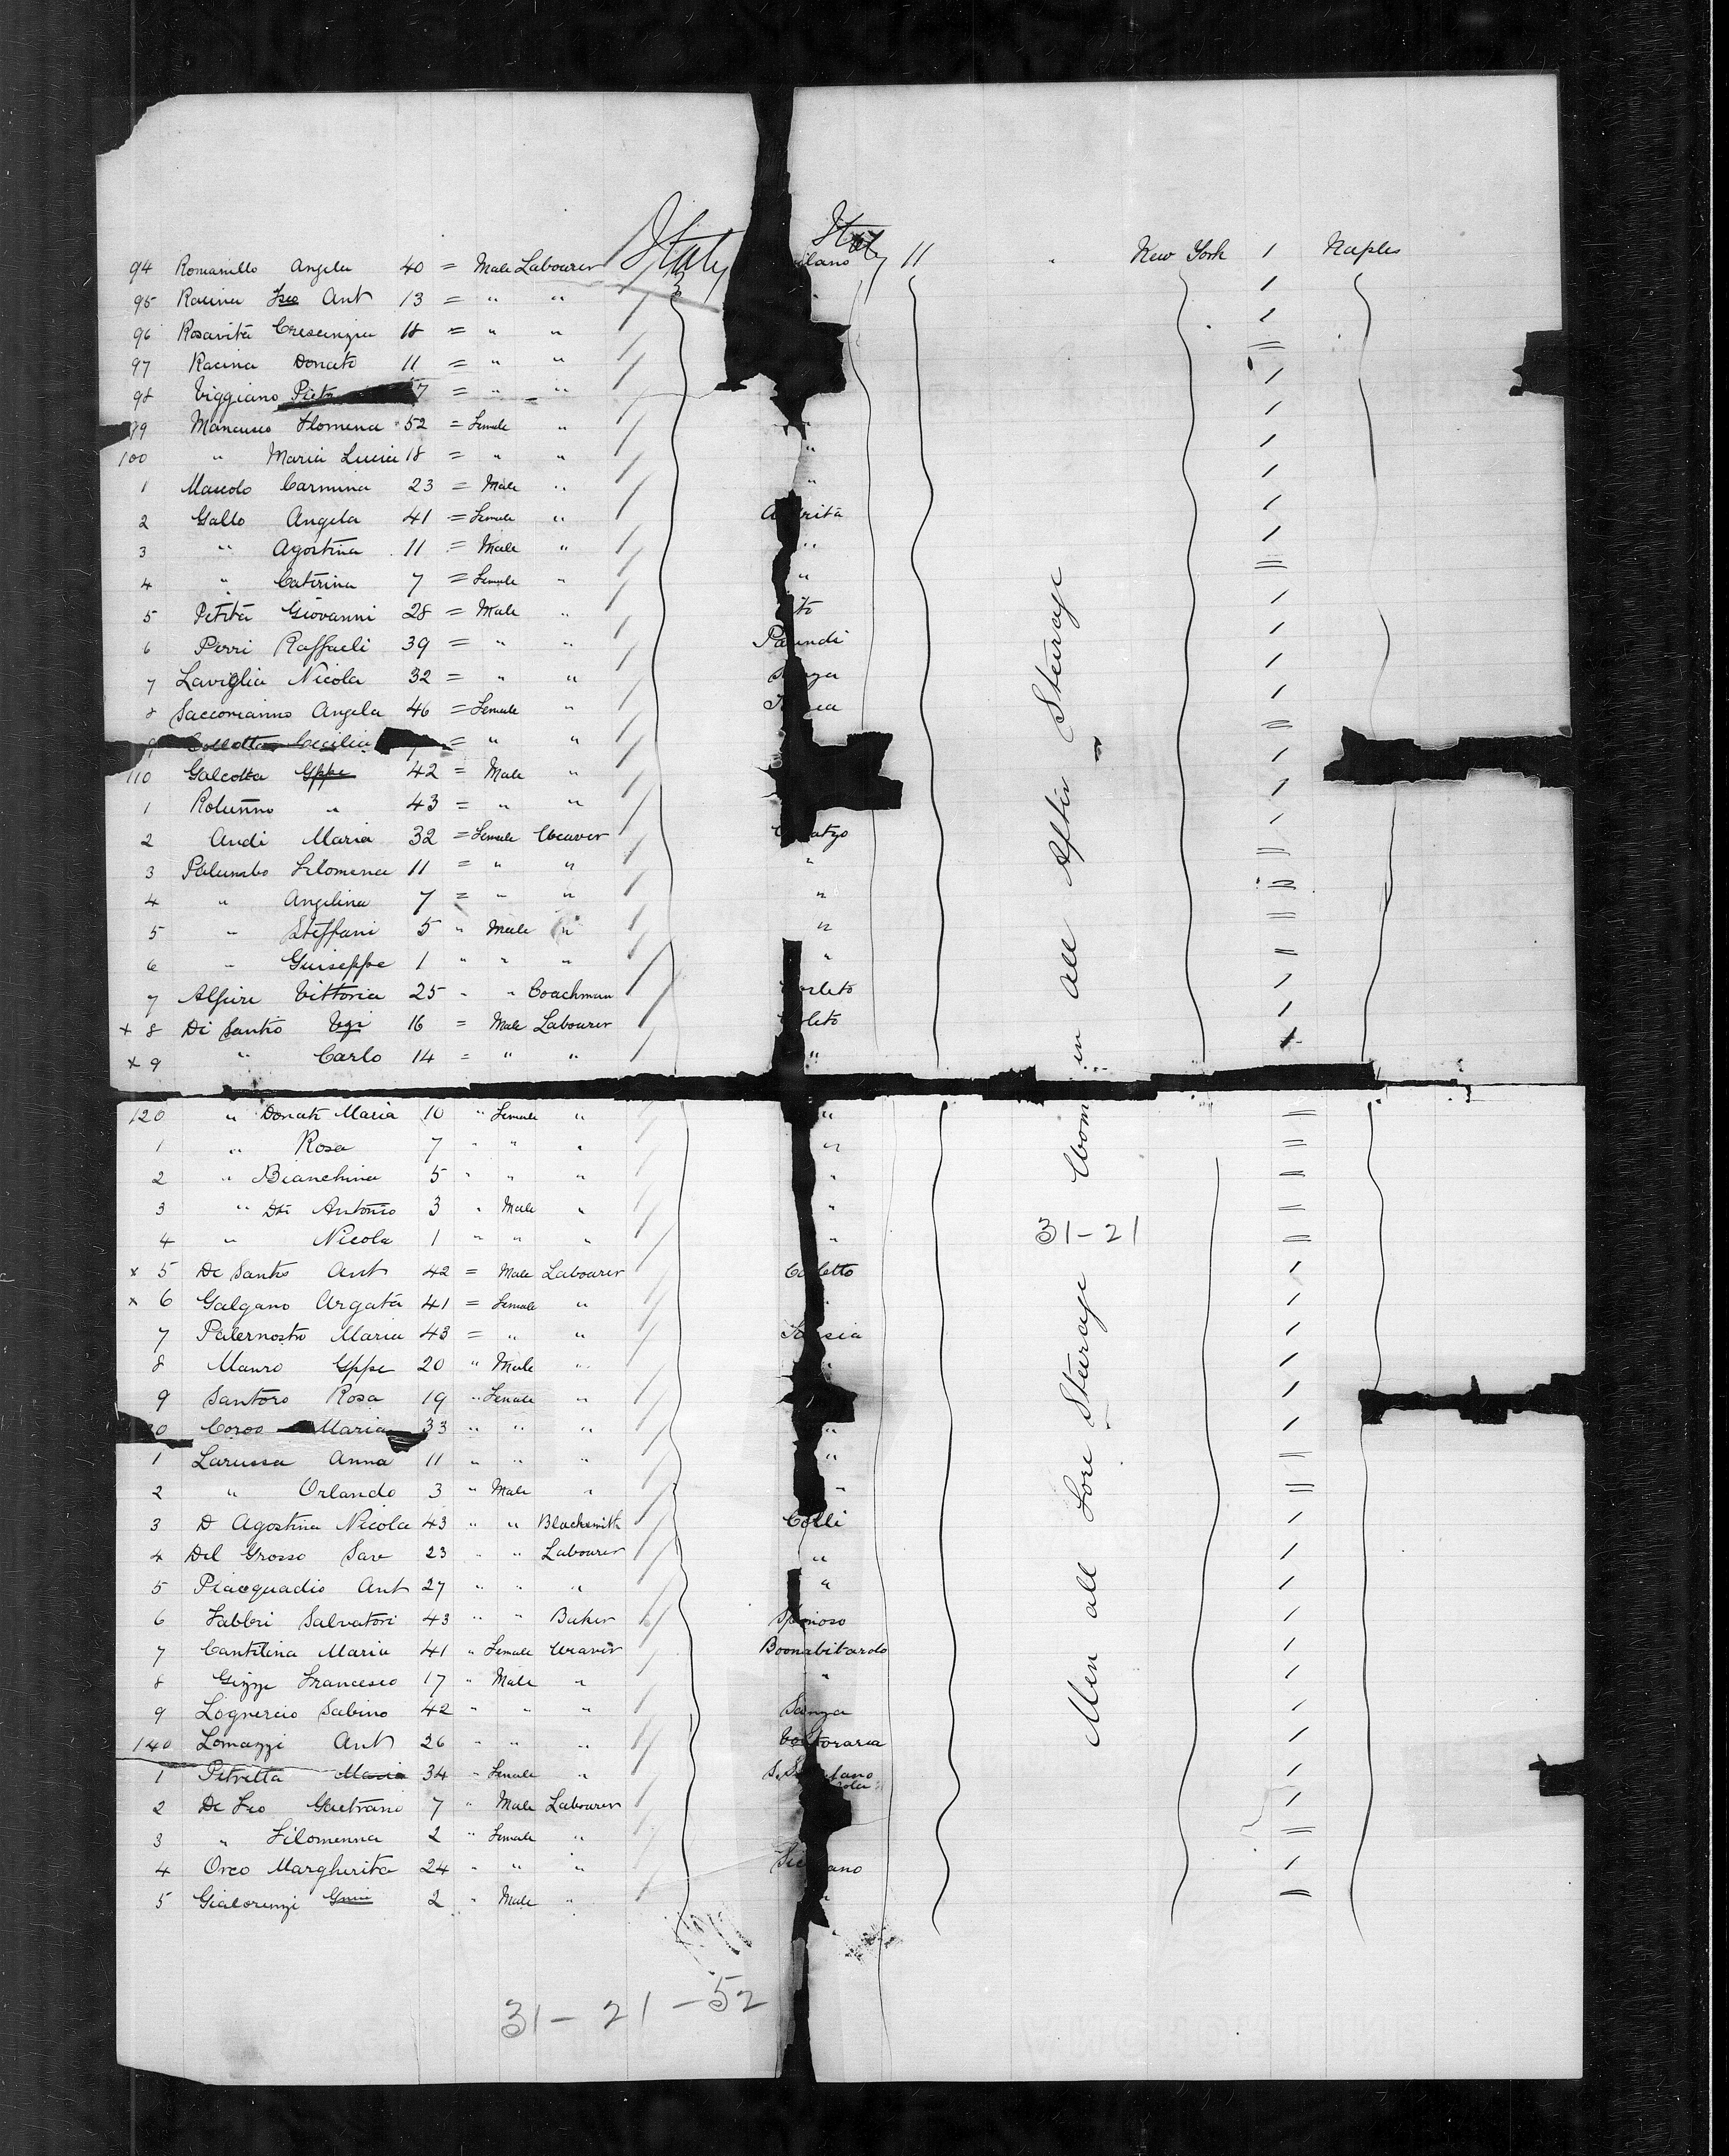 Italy Italy
94 Romanillo Angela 40 = Male Labourer ilano 11 New York 1 Naples
95 Racina Fco Ant 13 = " " /
96 Rosavita Crescenzia 18 = " " /
97 Racina Donato 11 = " " =
98 Viggiano Piet 7 = " " /
99 Mancuso Filomena 52 = Female " " /
100 " Maria Lucia 18 = " " " /
1 Mascolo Carmina 23 = Male " " /
2 Gallo Angela 41 = Female " rita /
3 " Agostina 11 = Male " " /
4 " Caterina 7 = Female " " =
5 Petita Giovanni 28 = Male " ito /
6 Perri Raffaeli 39 = " " P undi /
7 Laviglia Nicola 32 = " " S nza /
8 Saccomanno Angela 46 = Female " /
9 Cecilia = " " =
110 Galcotta Gppe 42 = Male " /
1 Rolunno " 43 = " " /
2 Andi Maria 32 = Female Weaver atzo /
3 Palumbo Filomena 11 = " " " =
4 " Angelina 7 = " " " =
5 " Steffani 5 " Male " " =
6 " Guiseppe 1 " " " " =
7 Alfieri Vittoria 25 " " Coachman orleto /
x 8 Di Santo 16 = Male Labourer leto /
x 9 " Carlo 14 = " " " /
120 " Donata Maria 10 " Female " " =
1 " Rosa 7 " " " " =
2 " Bianchina 5 " " " " =
3 " Antonio 3 " Male " " =
4 " Nicola 1 " " " " =
x 5 De Santo Ant 42 = Male Labourer Co letto /
x 6 Galgano Argata 41 = Female " " /
7 Palernostro Maria 43 = " " sia /
8 Mauro Gppe 20 " Male " " /
9 Santoro Rosa 19 " Female " /
0 Coroo Maria 33 " " " " /
1 Larussa Anna 11 " " " " =
2 " Orlando 3 " Male " " =
3 D Agostina Nicola 43 " " Blacksmith Colli /
4 Del Grosso Sav 23 " " Labourer " /
5 Piacquadio Ant 27 " " " " /
6 Fabbri Salvatori 43 " " Baker Spinoso /
7 Cantilina Maria 41 " Female Weaver Boonabitacolo /
8 Gizzi Francesco 17 " Male " " /
9 Lognercio Sabino 42 " " " Sanza /
140 Lomazzi Ant 26 " " " /
1 Petretta Maria 34 " Female " /
2 De Feo Gaetano 7 " Male Labourer /
3 " Filomenna 2 " Female " =
4 Orco Margherita 24 " " " ano /
5 Gialorenzi 2 " Male " " =
Men all Fore Steerage Wom in all After Steerage
31-21
31-21-52